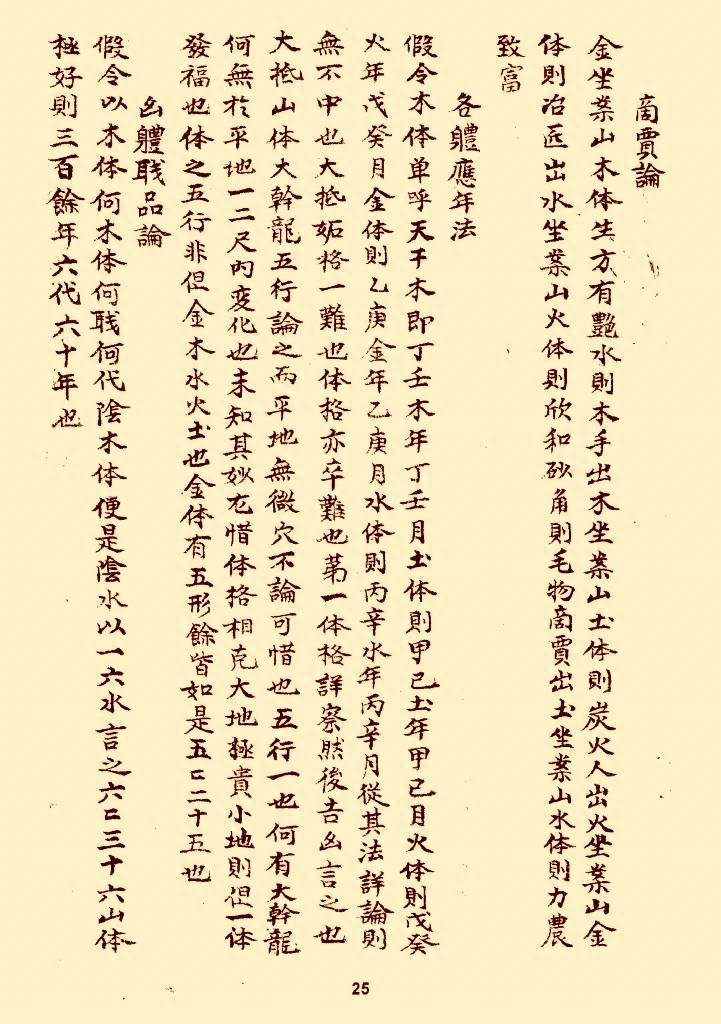 商賈論
金坐案山木体生方有艷水則木手出木坐案山土体則炭火人出火坐案山金
体則冶匠出水坐案山火体則欣和砂角則毛物商賈出土坐案山水体則力農
致富
各軆應年法
假令木体单呼天干木即丁壬木年丁壬月土体則甲己土年甲己月火体則戊癸
火年戊癸月金体則乙庚金年乙庚月水体則丙辛水年丙辛月從其法詳論則
無不中也大抵妬格一難也体格亦卒難也苐一体格詳察然後吉凶言之也
大抵山体大幹龍五行論之而平地無微穴不論可惜也五行一也何有大幹龍
何無於平地一二尺內変化也未知其妙尤惜体格相克大地極貴小地則但一体
發福也体之五行非但金木水火土也金体有五形餘皆如是五匚二十五也
凶軆職品論
假令以木体何木体何职何代陰木体便是陰水以一六水言之六匚三十六山体
極好則三百餘年六代六十年也
25